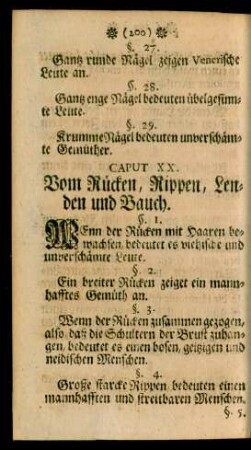 (200)
§. 27.
Gantz runde Nägel zeigen Venerische
Leute an.
§. 28.
Gantz enge Nägel bedeuten übelgesinn-
te Leute.
§. 29.
Krumme Nägel bedeuten unverschäm-
te Gemüther.
CAPUT XX.
Vom Rücken, Rippen, Len-
den und Bauch.
§. 1.
WEnn der Rücken mit Haaren be-
wachsen, bedeutet es viehische und
unverschämte Leute.
§. 2.
Ein breiter Rücken zeiget ein mann-
hafftes Gemüth an.
§. 3.
Wenn der Rücken zusammen gezogen,
also, daß die Schultern der Brust zuhan-
gen, bedeutet es einen bösen, geitzigen und
neidischen Menschen.
§. 4.
Große starcke Rippen, bedeuten einen
mannhafften und streitbaren Menschen.
§. 5.